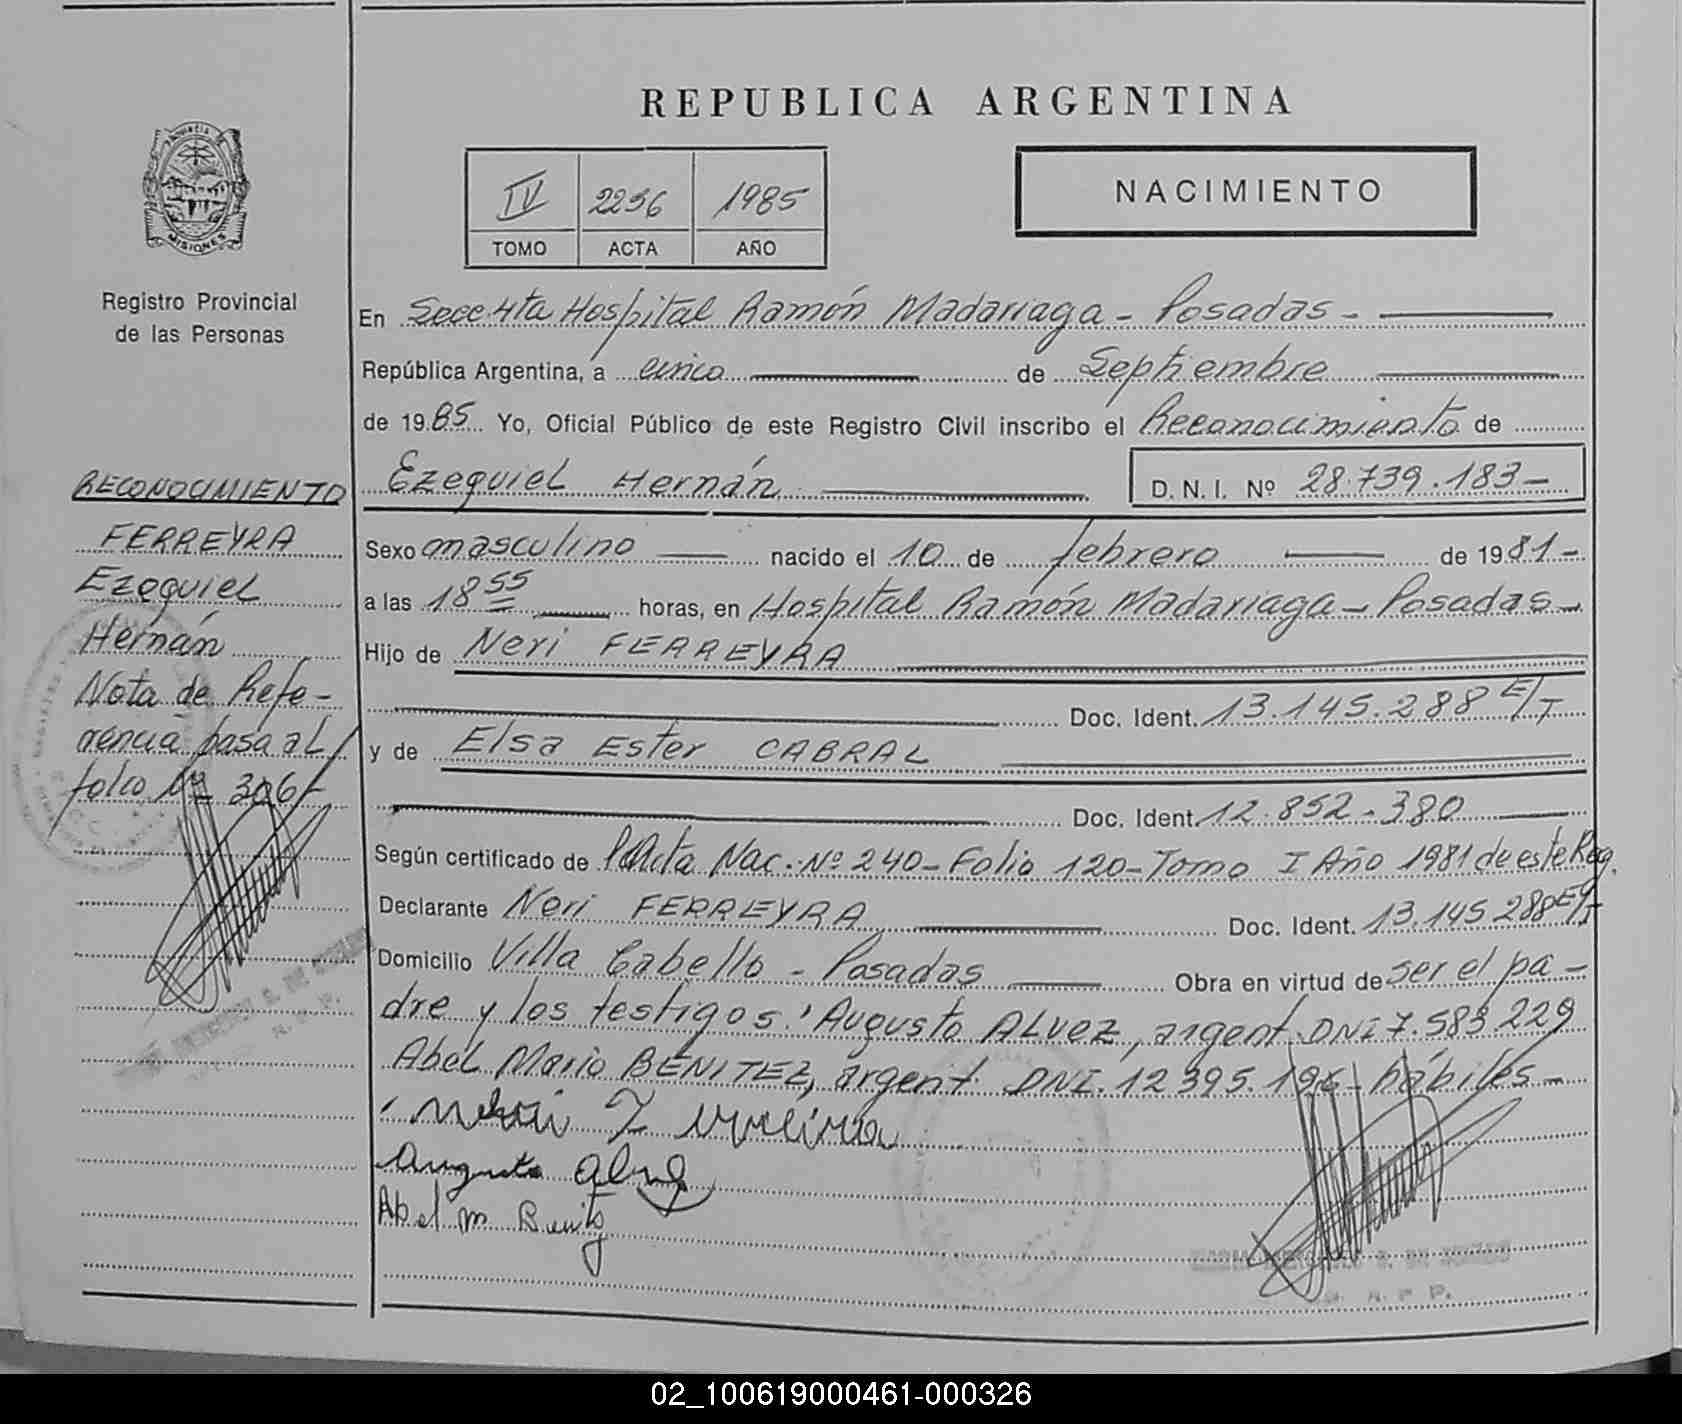 REPUBLICA ARGENTINA
MISIONES
Registro Provincial
de las Personas
IV 2256 1985
TOMO ACTA AÑO
NACIMIENTO
En Secc 4ta Hospital Ramón Madariaga - Posadas -
República Argentina, a cinco de Septiembre
de 1985 Yo, Oficial Público de este Registro Civil inscribo el Reconocimiento de
Ezequiel Hernán D. N. I. Nº 28.739.183-
Sexo masculino nacido el 10 de febrero de 1981-
a las 18 55 horas, en Hospital Ramón Madariaga - Posadas -
Hijo de Neri FERREYRA
Doc. Ident. 13.145.288 E/T
y de Elsa Ester CABRAL
Doc. Ident. 12.852.380
Según certificado de Acta Nac. Nº 240 - Folio 120 - Tomo I Año 1981 de este Reg.
Declarante Neri FERREYRA Doc. Ident. 13.145.288 E/T
Domicilio Villa Cabello - Posadas Obra en virtud de ser el pa-
dre y los testigos: Augusto ALVEZ, argent. DNI 7.583.229
Abel Mario BENITEZ, argent. DNI. 12.395.196 - hábiles -
Augusto
Abel M Benitez
RECONOCIMIENTO
FERREYRA
Ezequiel
Hernán
Nota de Refe-
rencia pasa al
folio Nº 306
02_100619000461-000326